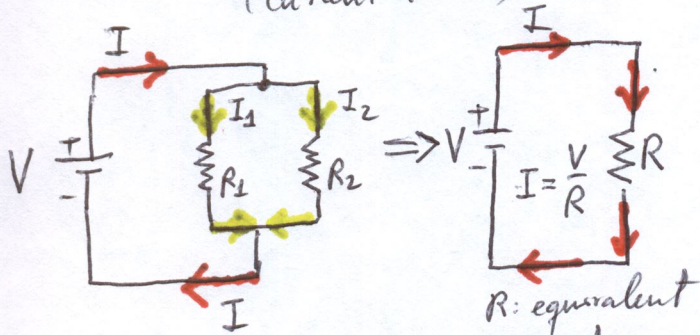 I
I
I₁
I₂
+
V
-
R₁
R₂
⇒
+
V
-
I = V/R
R
I
R: equivalent